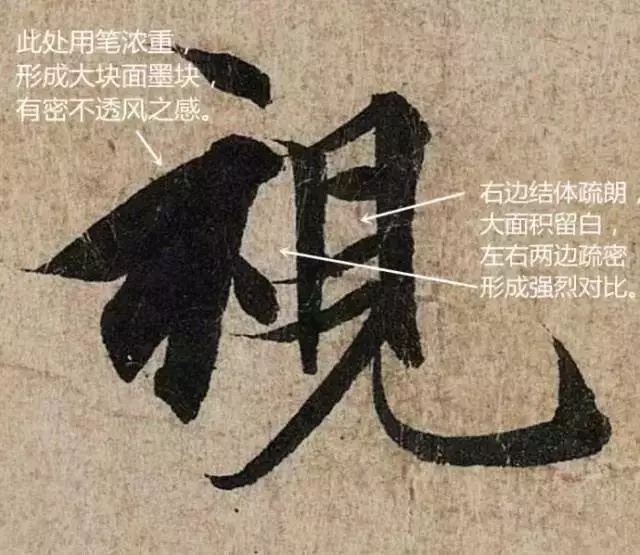 此处用笔浓重，
形成大块面墨块，
有密不透风之感。
視
右边结体疏朗，
大面积留白，
左右两边疏密
形成强烈对比。